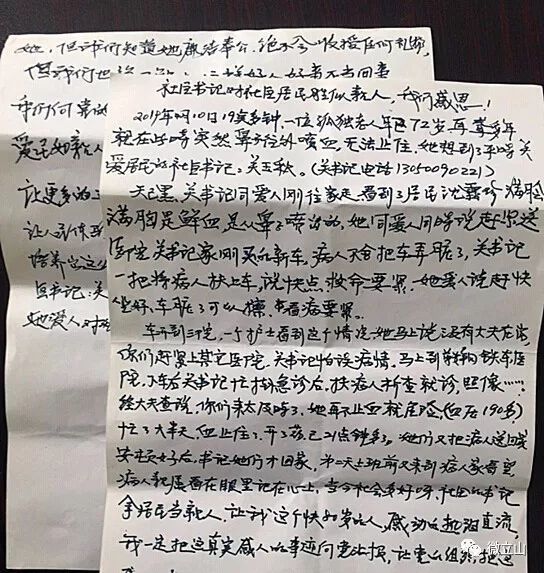 她,但我们知道她廉洁奉公,绝不会收授任何礼物,
但我们也
社区书记对社区居民胜似亲人,我们感恩!
2019年4月10日19点多钟,一位孤独老人年已72岁再
就在此时突然鼻子往外喷血,无法止住,她想到了平时关
爱居民的社区书记:关玉秋。(关书记电话13050090221)
天已黑,关书记同爱人刚往家走,看到了居民沈 满脸
满胸是鲜血,是从鼻子喷出的,她同爱人同时说赶紧送
医院,关书记家刚买的新车,病人不舍把车弄脏了,关书记
一把将病人扶上车,说快点,救命要紧,她爱人说赶快
坐好,车脏了可以擦,看病要紧。
车开到三院,一个护士看到这个情况,她马上说:没有大夫在岗,
你们赶紧上其它医院。关书记怕误病情。马上到 铁东医
院,下车后关书记忙挂急诊后,扶病人检查就诊,照像……
经大夫查说,你们来太及时了,她再不止血就危险,(血压190多)
忙了大半天,血止住了,开了药已 点钟多了。她们又把病人送回家
安顿好后,书记她们才回家,第二天上班前又来到病人家看望
病人 看在眼里记在心上,当今社会多好呀,社区的书记
拿居民当亲人,让我这个快 岁的人,感动的热泪直流,
我一定把这真实感人的事迹向党汇报,让 组织把这
爱民如亲人
让更多的
让人民
培养出这
区书记:关
她爱人对
微立山